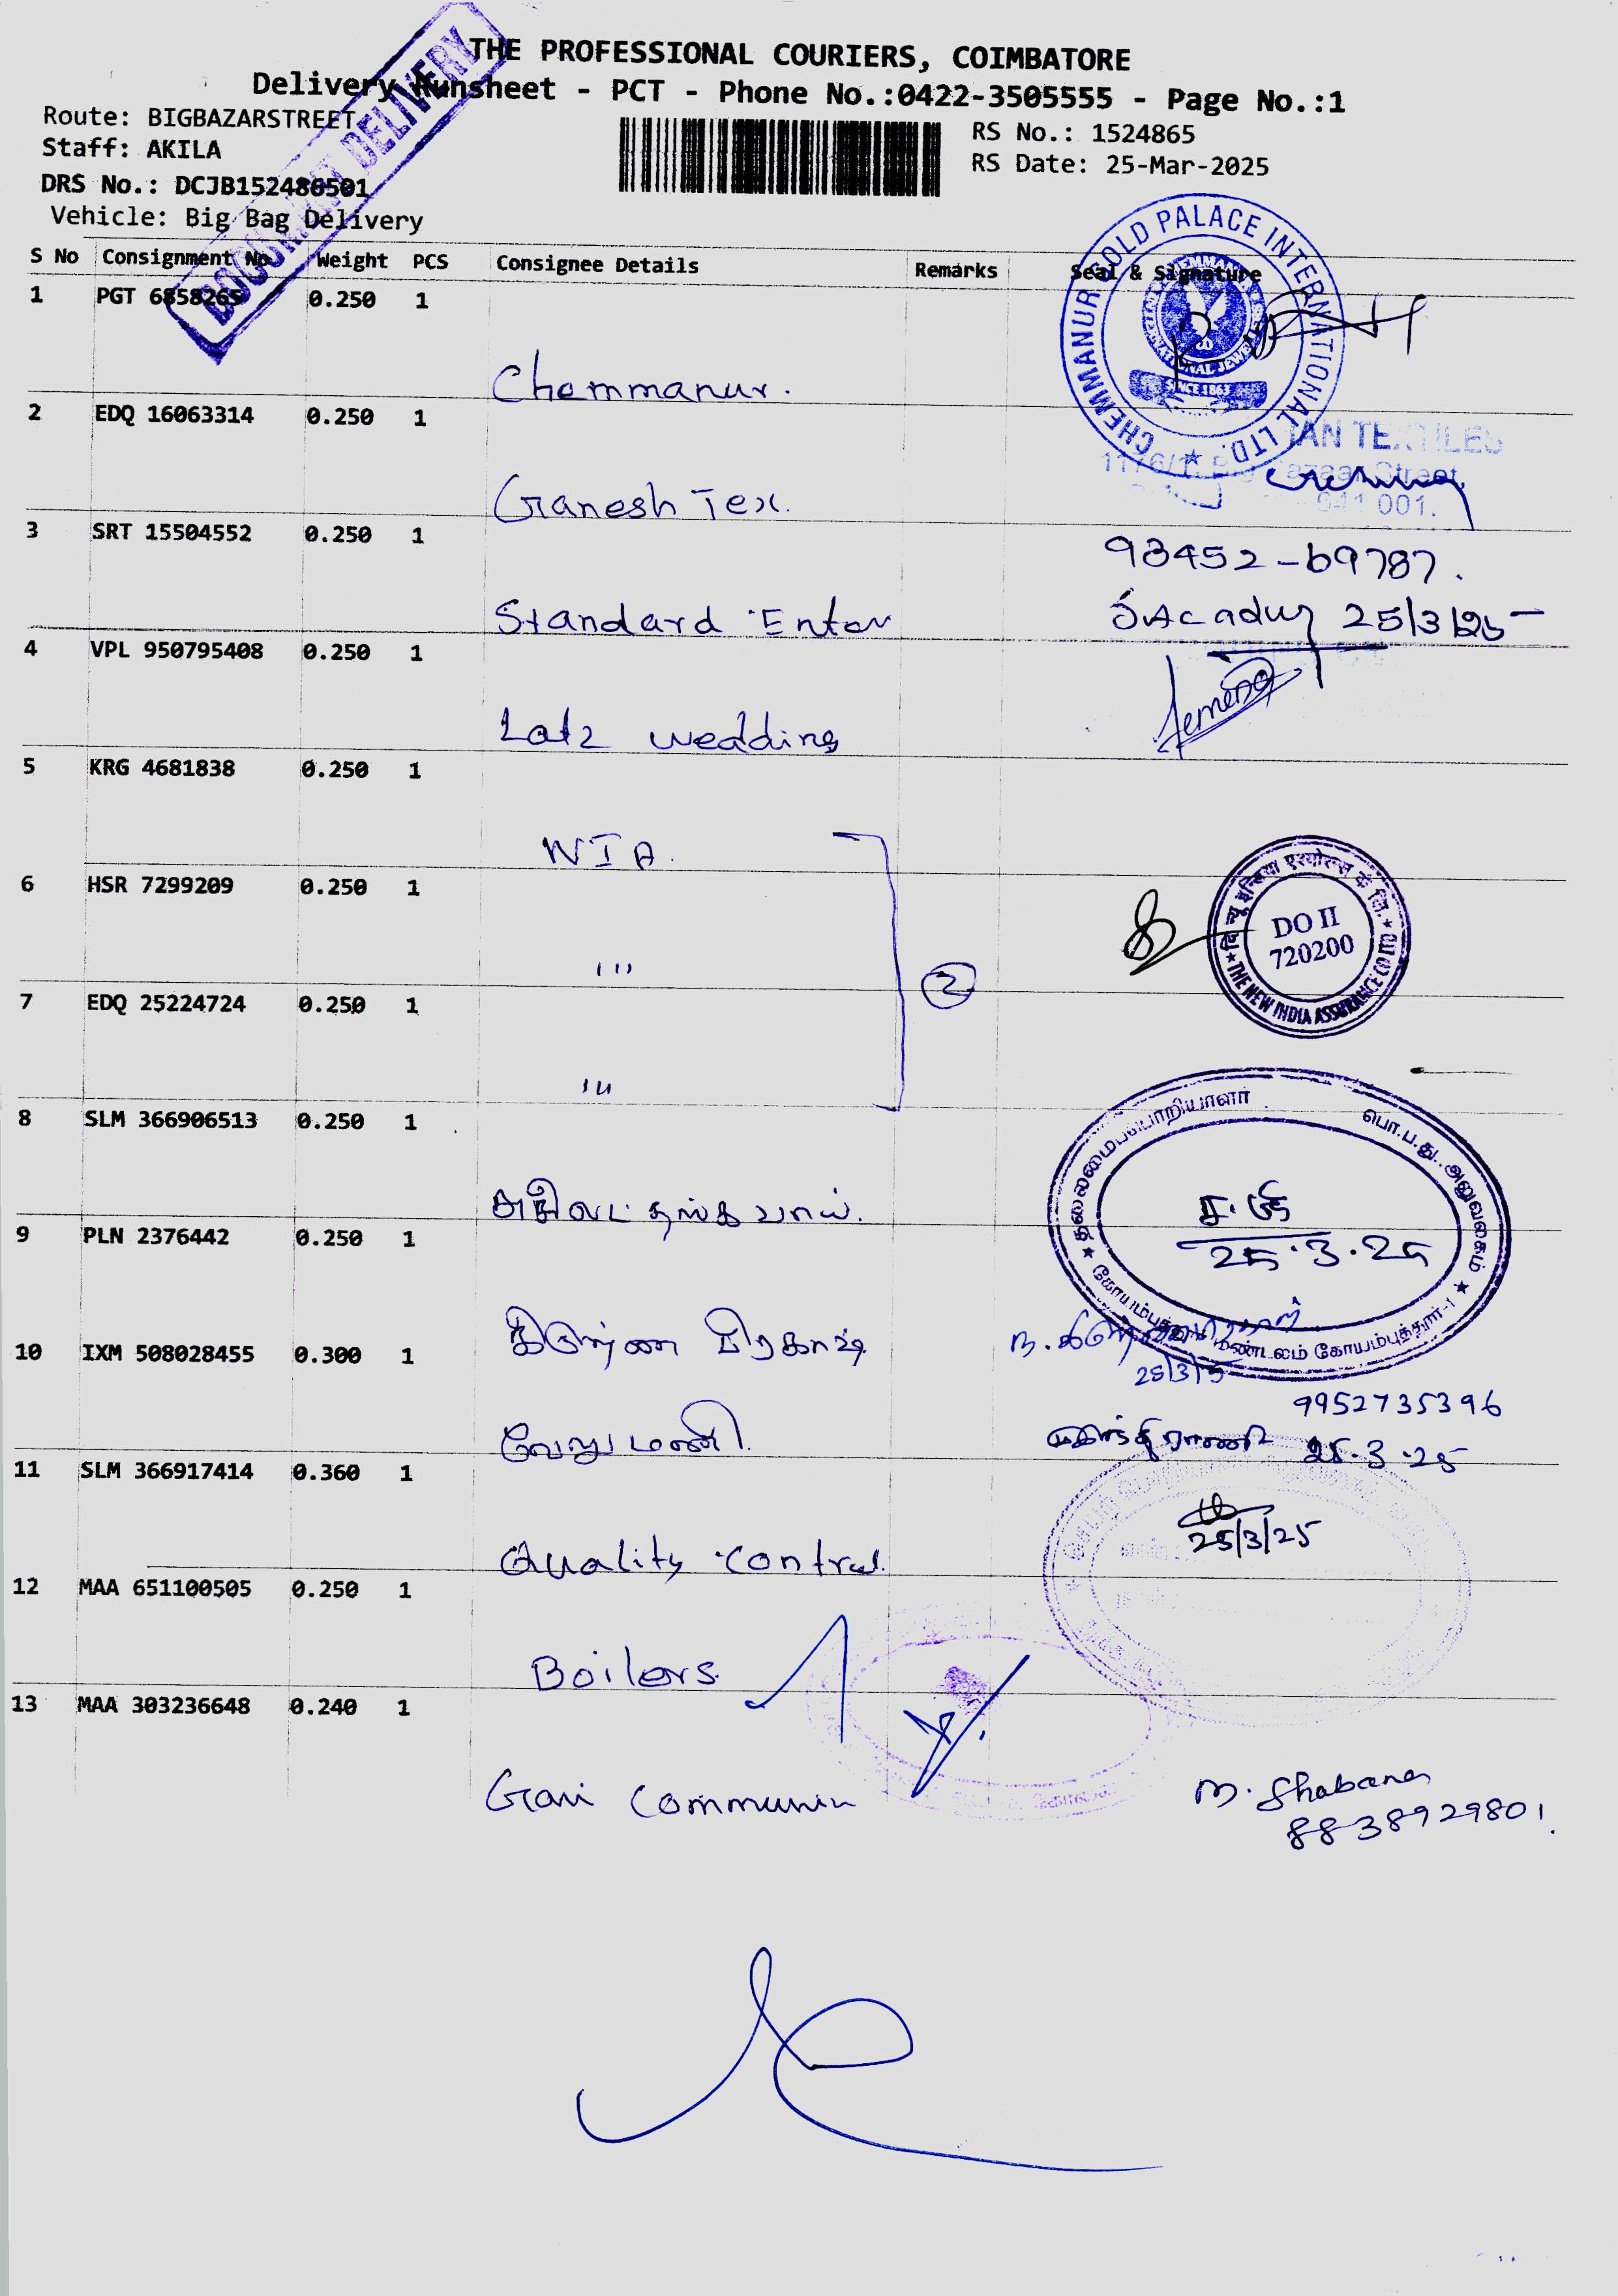 THE PROFESSIONAL COURIERS, COIMBATORE
Delivery Runsheet - PCT - Phone No.:0422-3505555 - Page No.:1
Route: BIGBAZARSTREET
Staff: AKILA
DRS No.: DCJB152486501
Vehicle: Big Bag Delivery
RS No.: 1524865
RS Date: 25-Mar-2025
DOCUMENT DELIVERY
S No Consignment No Weight PCS Consignee Details Remarks Seal & Signature
1 PGT 6858265 0.250 1
Chemmanur.
CHEMMANUR GOLD PALACE INTERNATIONAL LTD.
SINCE 1863
2 EDQ 16063314 0.250 1
Ganesh Tex.
TEXTILES
Street
641 001.
3 SRT 15504552 0.250 1
93452-69787.
Standard Enter
25/3/25
4 VPL 950795408 0.250 1
Latz wedding
5 KRG 4681838 0.250 1
NIA.
6 HSR 7299209 0.250 1
"
2
दि न्यू इन्डिया एश्योरन्स कं लि.
DO II
720200
THE NEW INDIA ASSURANCE CO LTD
7 EDQ 25224724 0.250 1
"
8 SLM 366906513 0.250 1
தலைமைப்பொறியாளர்
பொ.ப.து. அலுவலகம்
மண்டலம் கோயம்புத்தூர்-1
25.3.25
9 PLN 2376442 0.250 1
கிருஷ்ண பிரகாஷ்
25/3/5
10 IXM 508028455 0.300 1
வேலுமணி
9952735396
25.3.25
11 SLM 366917414 0.360 1
Quality control
25/3/25
12 MAA 651100505 0.250 1
Boilers
13 MAA 303236648 0.240 1
Communin
M. Shabana
8838929801.